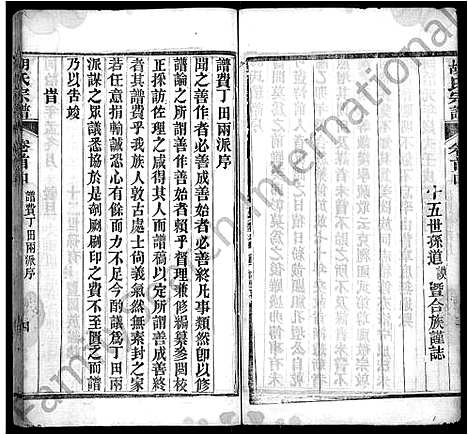 胡氏宗譜
卷首四
十五世孫道謨暨合族謹誌
譜費丁田兩派序
聞之善作者必善成善始者必善終凡事類然卽以修
譜論之所謂善作善始者賴乎督理兼修編纂參閱校
正採訪佐理之咸得其人而定所謂善成善終
者其譜費乎我族人敦古處士尚義氣然無素封之家
若任意捐輸誠恐心有餘力不足今酌議爲丁田兩
派謀之眾議悉協於是剞劂刷印之費不至匱乏而譜
乃以告竣
旹
胡氏宗譜
卷首四
譜費丁田兩派序
四
FamilySearch International